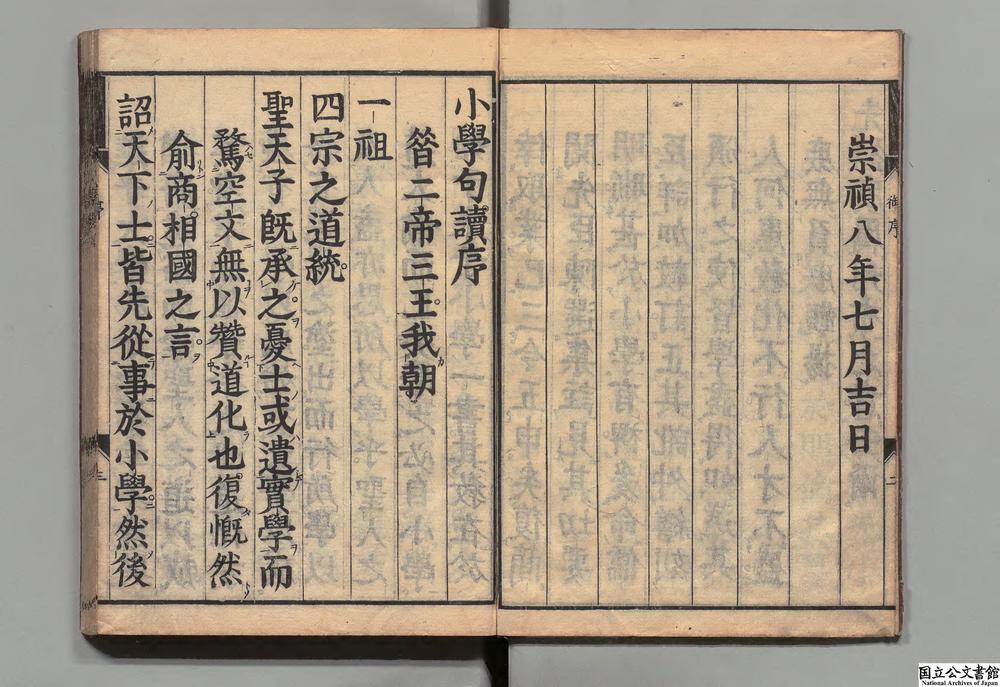 崇禎八年七月吉日
御序
二
小學句讀序
昝二帝三王我朝
一祖
四宗之道統
聖天子既承之憂士或遺實學而
騖空文無以贊道化也復慨然
俞商相國之言
詔天下士皆先從事於小學然後
序
三
国立公文書館
National Archives of Japan